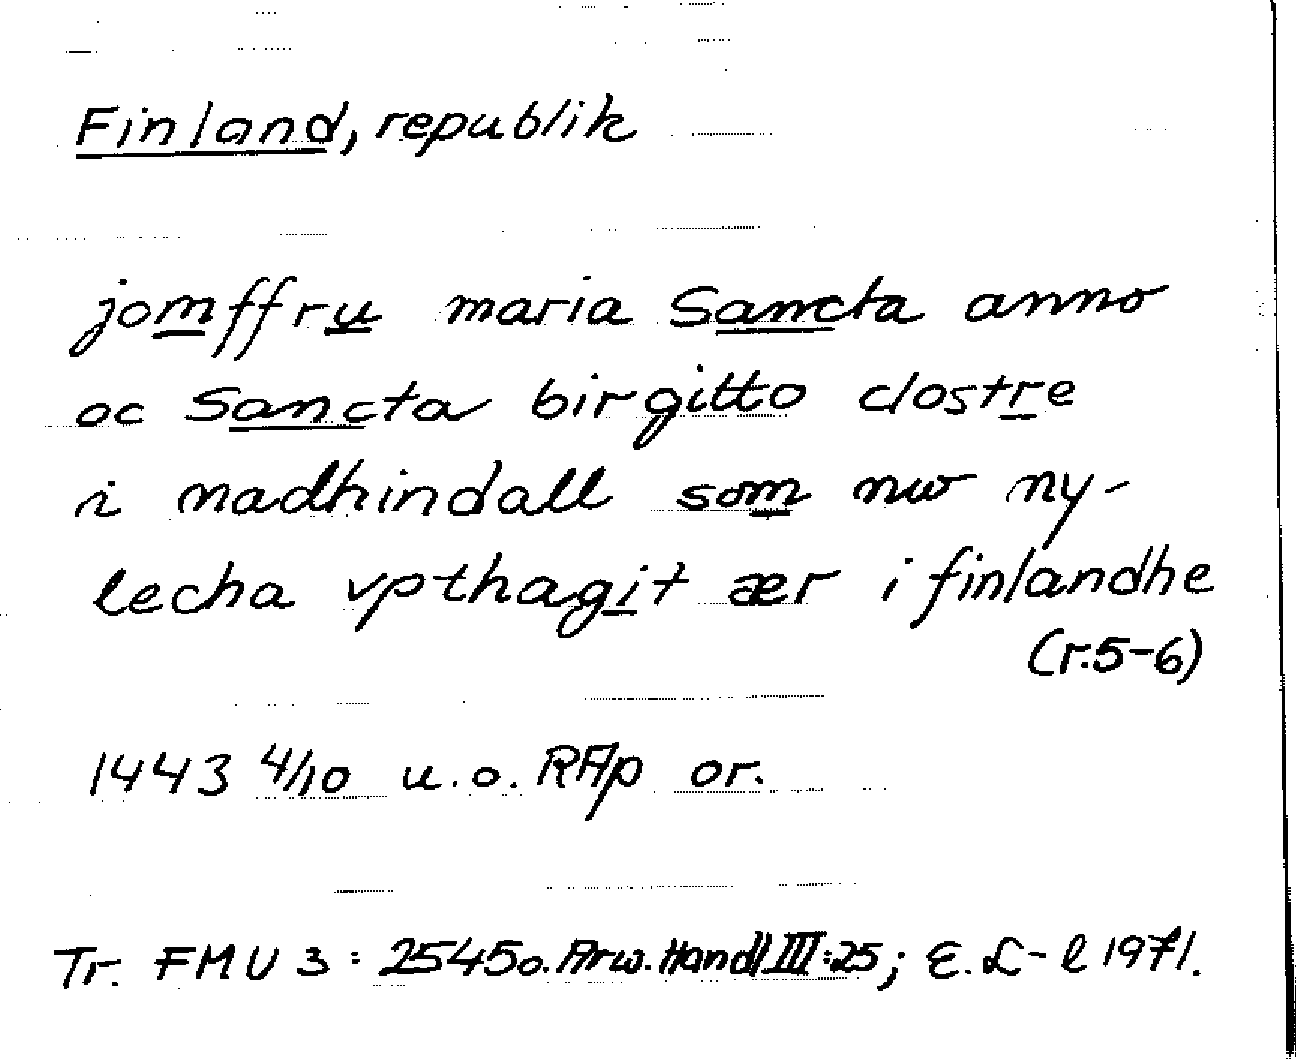 Finland, republik
jomffru maria Sancta anno
oc Sancta birgitto clostre
i nadhindall som nw ny-
lecha vpthagit ær i finlandhe
(r.5-6)
1443 4/10 u.o. RAp or.
Tr. FMU 3: 2545 o. Arw. Handl III:25; E. L-l 1971.